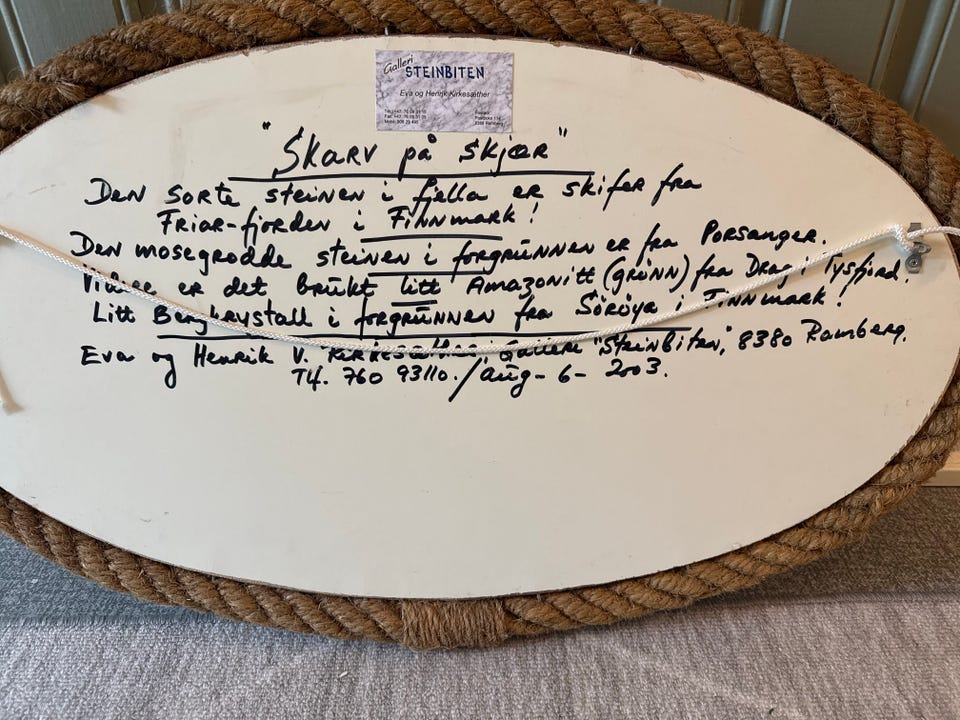 Galleri
STEINBITEN
Eva og Henrik Kirkesæther
"Skarv på skjær"
Den sorte steinen i fjella er skifer fra
Friar-fjorden i Finnmark!
Den mosegrodde steinen i forgrunnen er fra Porsanger.
Videre er det brukt litt Amazonitt (grønn) fra Drag i Tysfjord.
Litt Bergkrystall i forgrunnen fra Sörøya i Finnmark!
Eva og Henrik V. Kirkesæther, Galleri "Steinbiten", 8380 Ramberg.
Tlf. 760 93110. / aug - 6 - 2003.